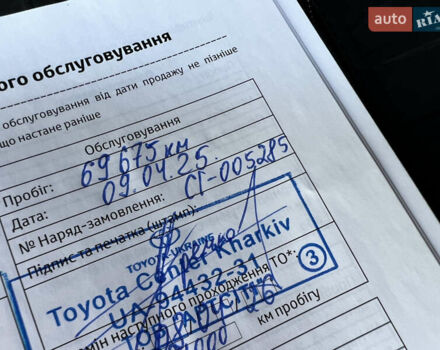 auto RIA
ого обслуговування
обслуговування від дати продажу не пізніше
що настане раніше
Обслуговування
Пробіг: 69 675 км
Дата: 09.04.25.
№ Наряд-замовлення: СТ-005285
Підпис та печатка (штамп):
TOYOTA-UKRAINE
Toyota Center Kharkiv
UA-94432-31
мін наступного проходження ТО*:
3
км пробігу